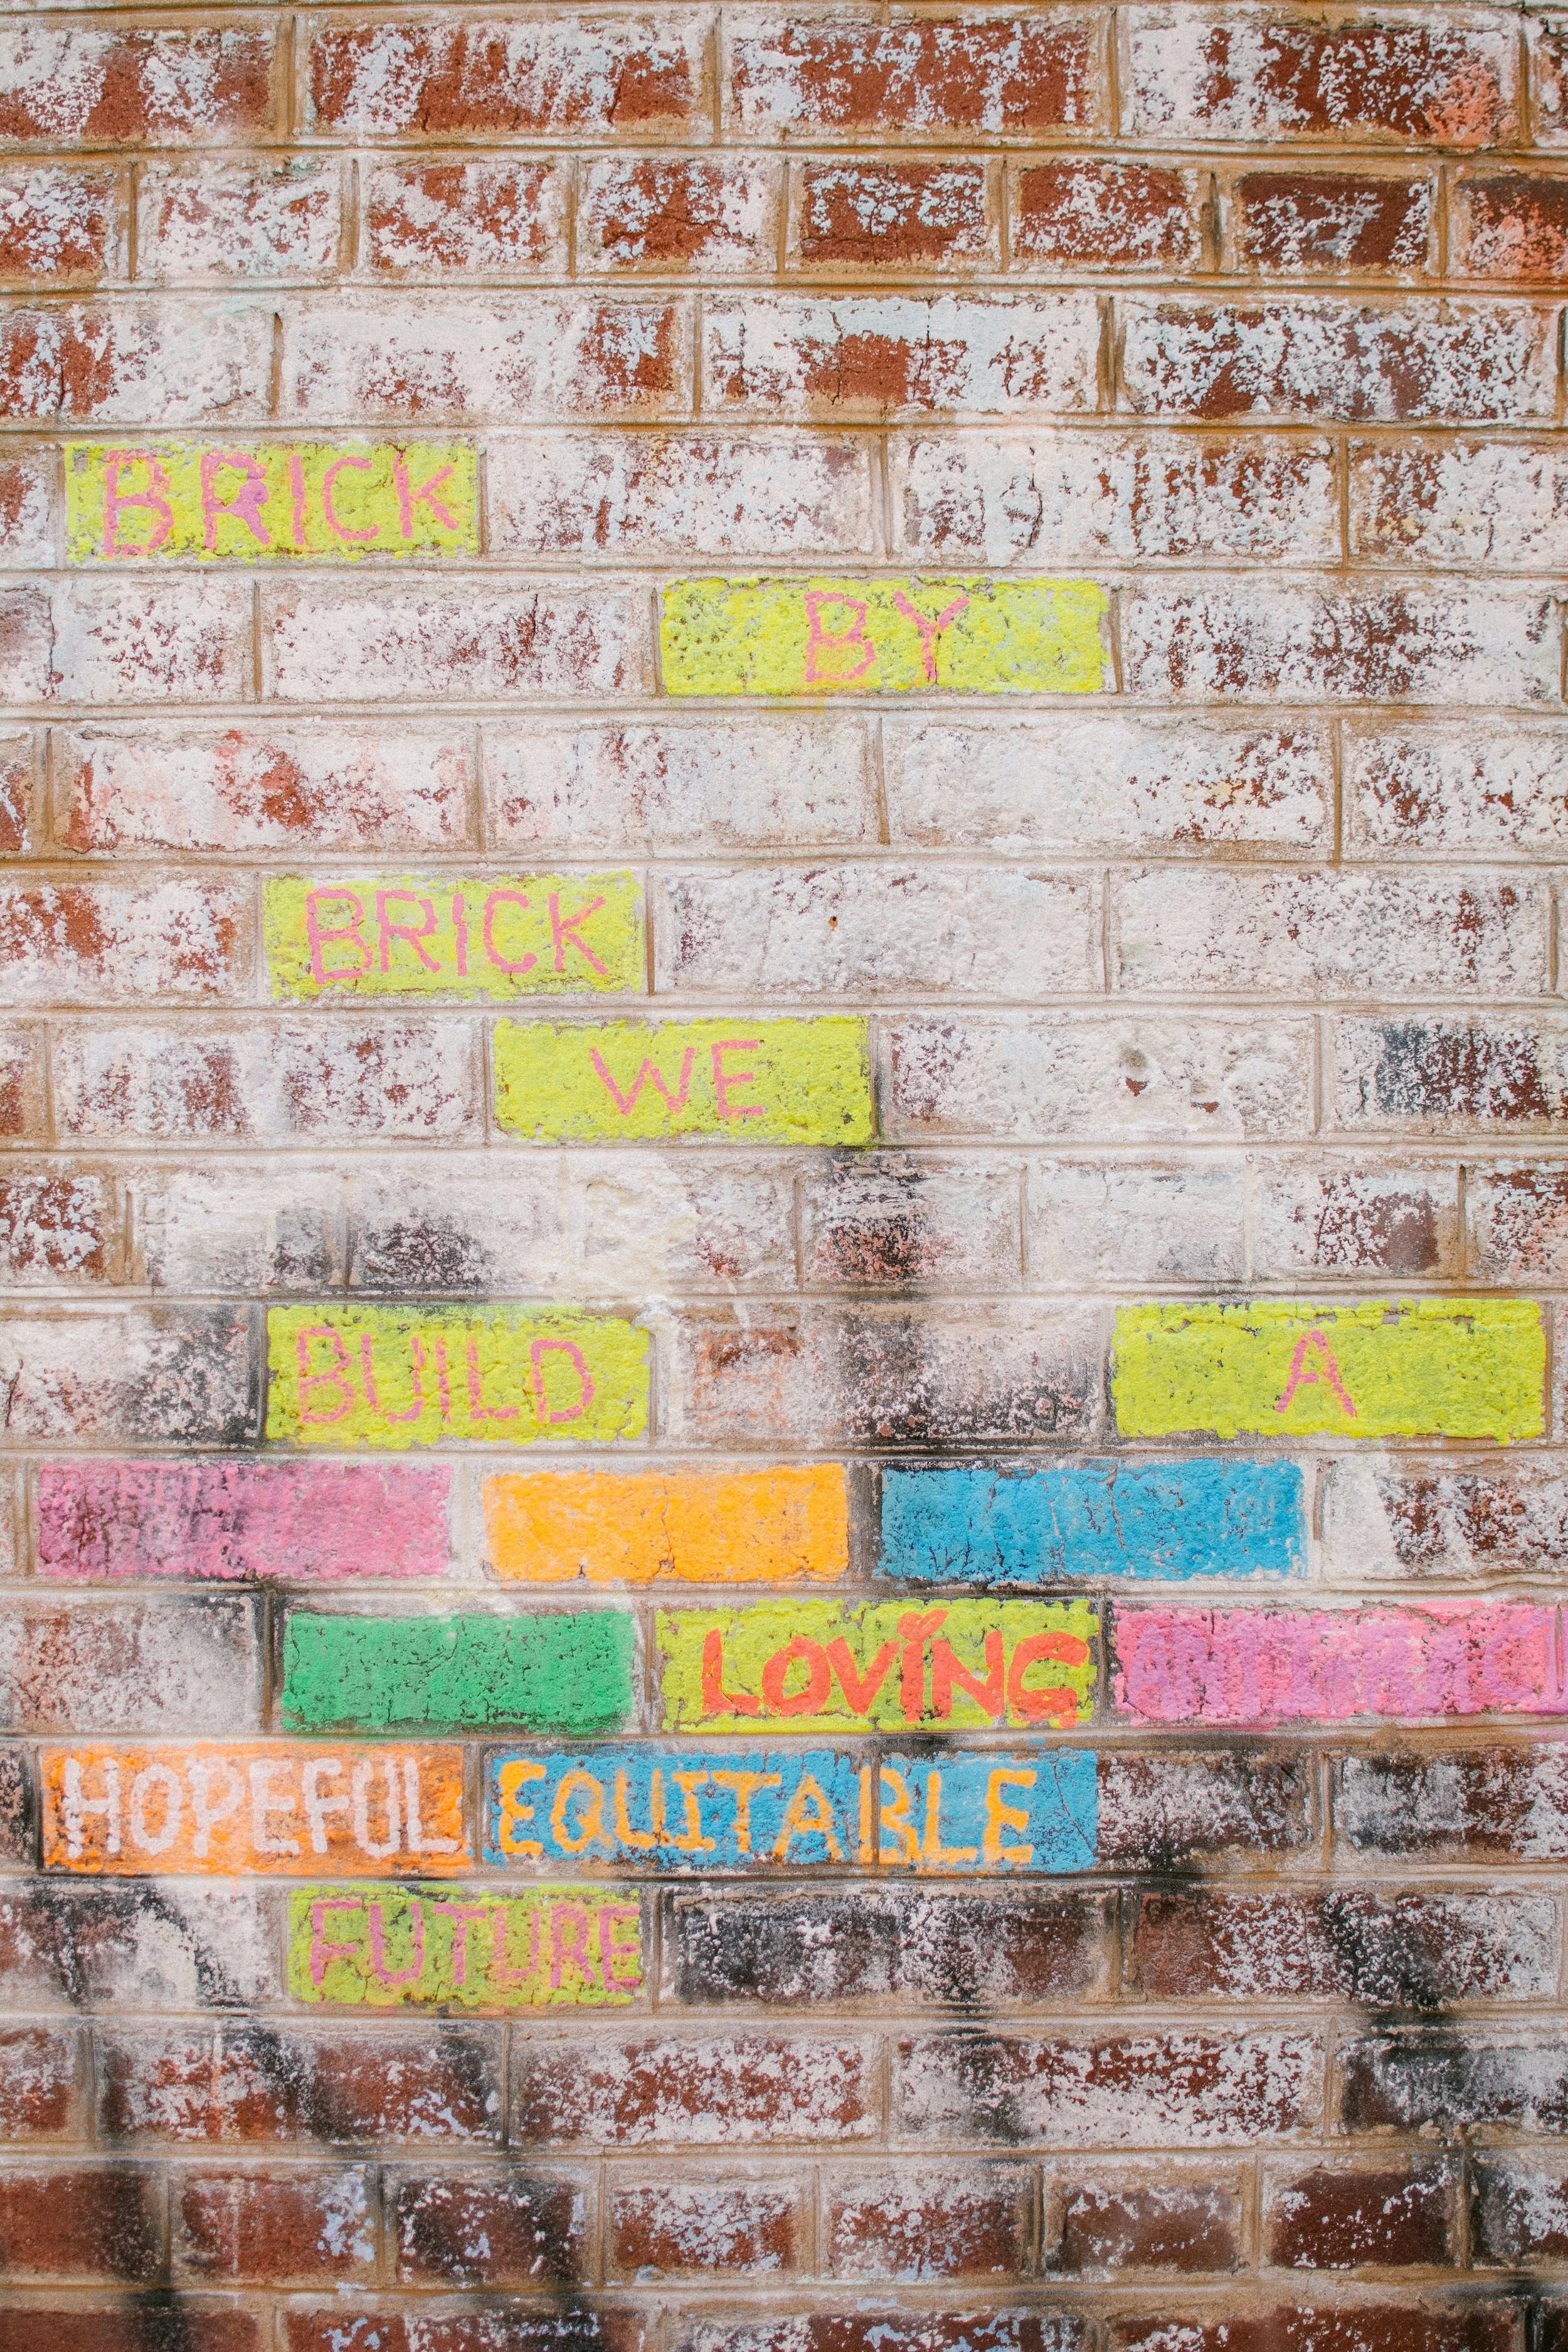 BRICK
BY
BRICK
WE
BUILD A
LOVING
HOPEFUL EQUITABLE
FUTURE